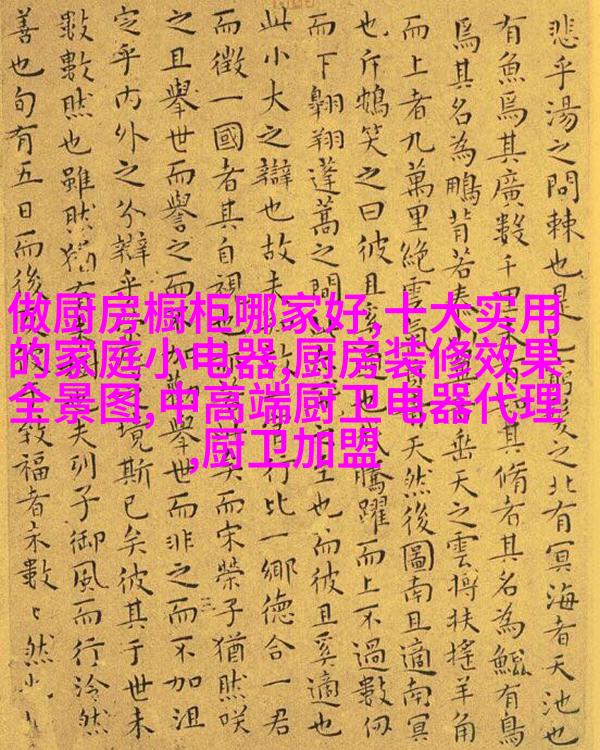 做厨房橱柜哪家好,十大实用
的家庭小电器,厨房装修效果
全景图,中高端厨卫电器代理
,厨卫加盟
悲乎湯之問棘也是窮髮之北有冥海者天池也
有魚焉其廣數千里未有其脩者其名為鯤有鳥
焉其名為鵬背若泰山若岳天之雲摶扶搖羊角
而上者九萬里絕雲氣天然後圖南且適南冥
也斥鴳笑之曰彼且奚適也我騰躍而上不過數仞
而下翱翔蓬蒿之間至也而彼且奚適也
此小大之辯也故夫行比一鄉德合一君
而徵一國者其自視也亦若矣而宋榮子猶然咲
之且舉世而譽之而不加勸舉世而非之而不加沮
定乎內外之分辯乎之境斯已矣彼其于世未
數數然也雖然猶有未也夫列子御風而行泠然
善也旬有五日而後致福者未數〻然